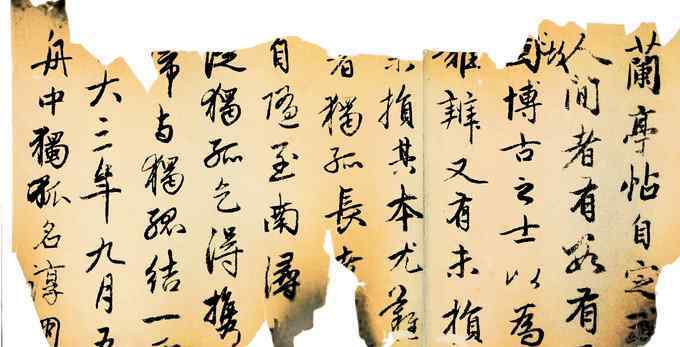 蘭亭帖自定
人間者有數有
故博古之士以為
難辨又有未損
未損其本尤難
者獨孤長老
自隨至南潯
從獨孤乞得攜
歸与獨孤結一
大三年九月五
舟中獨孤名淳朋